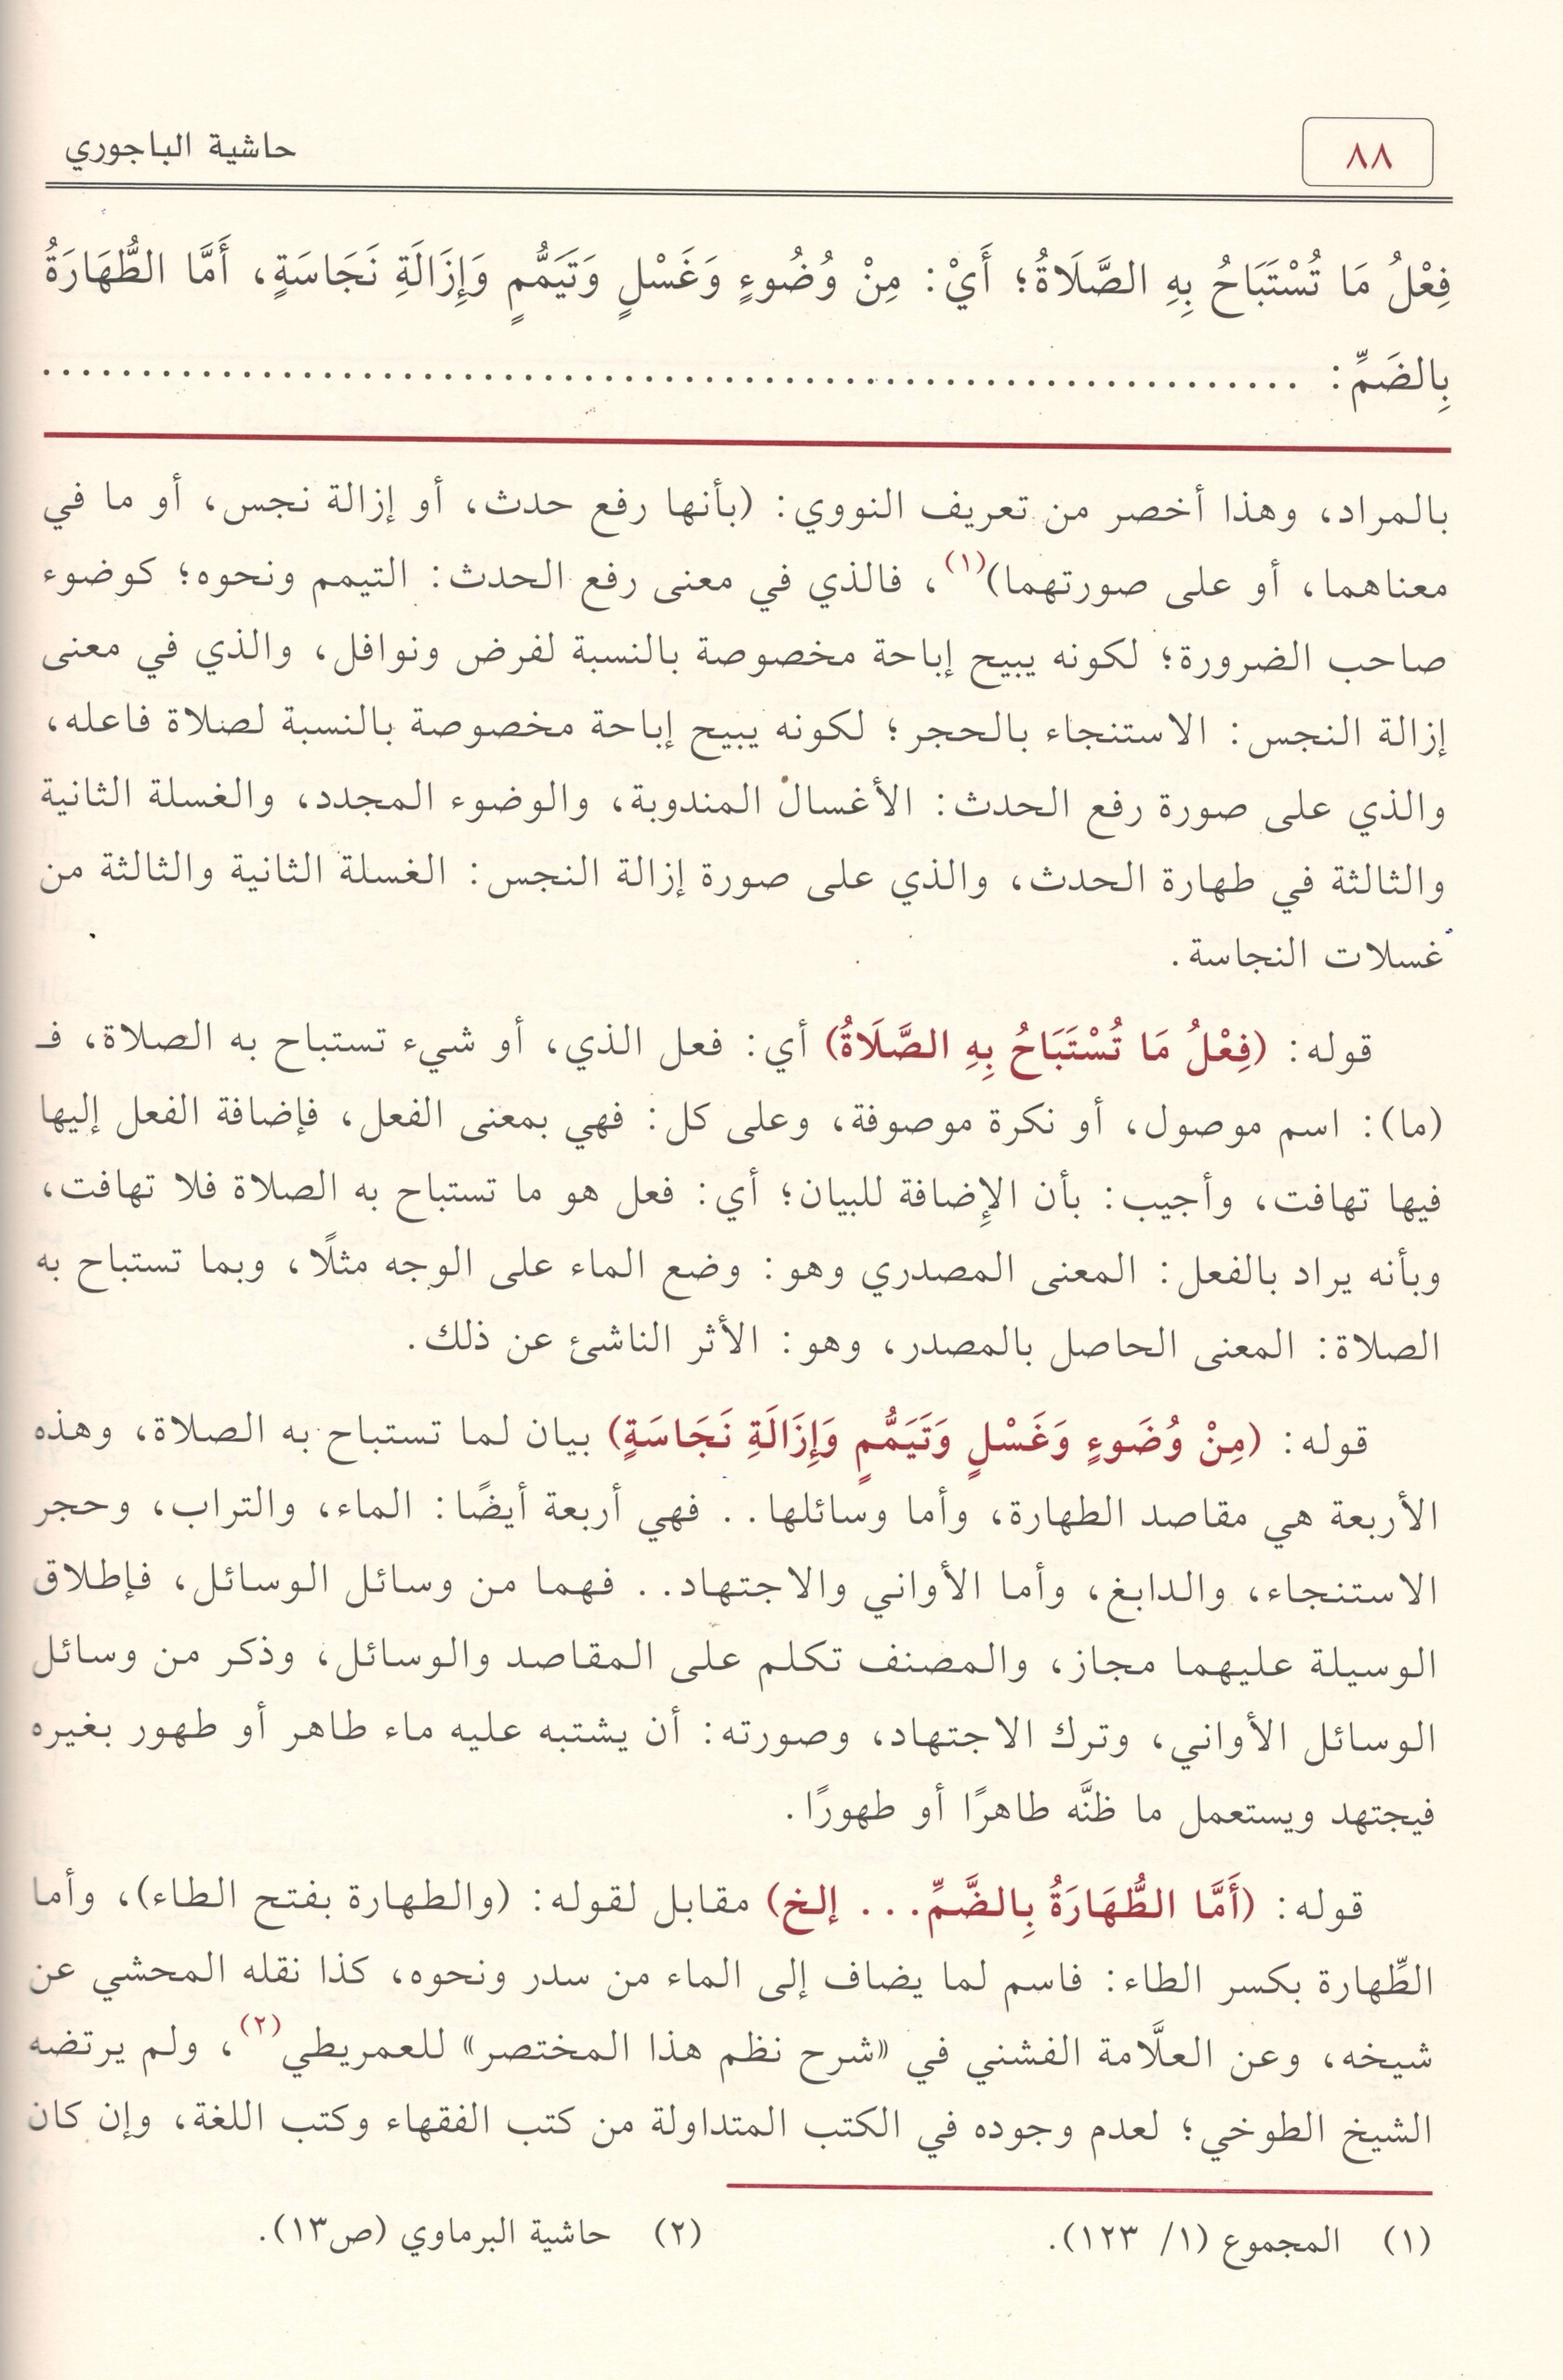 ٨٨
حاشية الباجوري
فِعْلُ مَا تُسْتَبَاحُ بِهِ الصَّلَاةُ؛ أَيْ: مِنْ وُضُوءٍ وَغَسْلٍ وَتَيَمُّمٍ وَإِزَالَةِ نَجَاسَةٍ، أَمَّا الطُّهَارَةُ
بِالضَمِّ: ................................................................
بالمراد، وهذا أخصر من تعريف النووي: (بأنها رفع حدث، أو إزالة نجس، أو ما في
معناهما، أو على صورتهما)(١)، فالذي في معنى رفع الحدث: التيمم ونحوه؛ كوضوء
صاحب الضرورة؛ لكونه يبيح إباحة مخصوصة بالنسبة لفرض ونوافل، والذي في معنى
إزالة النجس: الاستنجاء بالحجر؛ لكونه يبيح إباحة مخصوصة بالنسبة لصلاة فاعله،
والذي على صورة رفع الحدث: الأغسال المندوبة، والوضوء المجدد، والغسلة الثانية
والثالثة في طهارة الحدث، والذي على صورة إزالة النجس: الغسلة الثانية والثالثة من
غسلات النجاسة.
قوله: (فِعْلُ مَا تُسْتَبَاحُ بِهِ الصَّلَاةُ) أي: فعل الذي، أو شيء تستباح به الصلاة، فـ
(ما): اسم موصول، أو نكرة موصوفة، وعلى كل: فهي بمعنى الفعل، فإضافة الفعل إليها
فيها تهافت، وأجيب: بأن الإِضافة للبيان؛ أي: فعل هو ما تستباح به الصلاة فلا تهافت،
وبأنه يراد بالفعل: المعنى المصدري وهو: وضع الماء على الوجه مثلًا، وبما تستباح به
الصلاة: المعنى الحاصل بالمصدر، وهو: الأثر الناشئ عن ذلك.
قوله: (مِنْ وُضَوءٍ وَغَسْلٍ وَتَيَمُّمٍ وَإِزَالَةِ نَجَاسَةٍ) بيان لما تستباح به الصلاة، وهذه
الأربعة هي مقاصد الطهارة، وأما وسائلها.. فهي أربعة أيضًا: الماء، والتراب، وحجر
الاستنجاء، والدابغ، وأما الأواني والاجتهاد.. فهما من وسائل الوسائل، فإطلاق
الوسيلة عليهما مجاز، والمصنف تكلم على المقاصد والوسائل، وذكر من وسائل
الوسائل الأواني، وترك الاجتهاد، وصورته: أن يشتبه عليه ماء طاهر أو طهور بغيره
فيجتهد ويستعمل ما ظنَّه طاهرًا أو طهورًا.
قوله: (أَمَّا الطُّهَارَةُ بِالضَّمِّ... إلخ) مقابل لقوله: (والطهارة بفتح الطاء)، وأما
الطِّهارة بكسر الطاء: فاسم لما يضاف إلى الماء من سدر ونحوه، كذا نقله المحشي عن
شيخه، وعن العلَّامة الفشني في «شرح نظم هذا المختصر» للعمريطي(٢)، ولم يرتضه
الشيخ الطوخي؛ لعدم وجوده في الكتب المتداولة من كتب الفقهاء وكتب اللغة، وإن كان
(١) المجموع (١/ ١٢٣).
(٢) حاشية البرماوي (ص١٣).